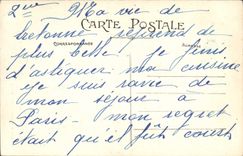 2me Ma vie de
CARTE POSTALE
bretonne reprend de
CORRESPONDANCE
plus belle je finis
d'astiquer ma cuisine
Je suis ravie de
mon séjour à
Paris - mon regret
était qu'il fût court